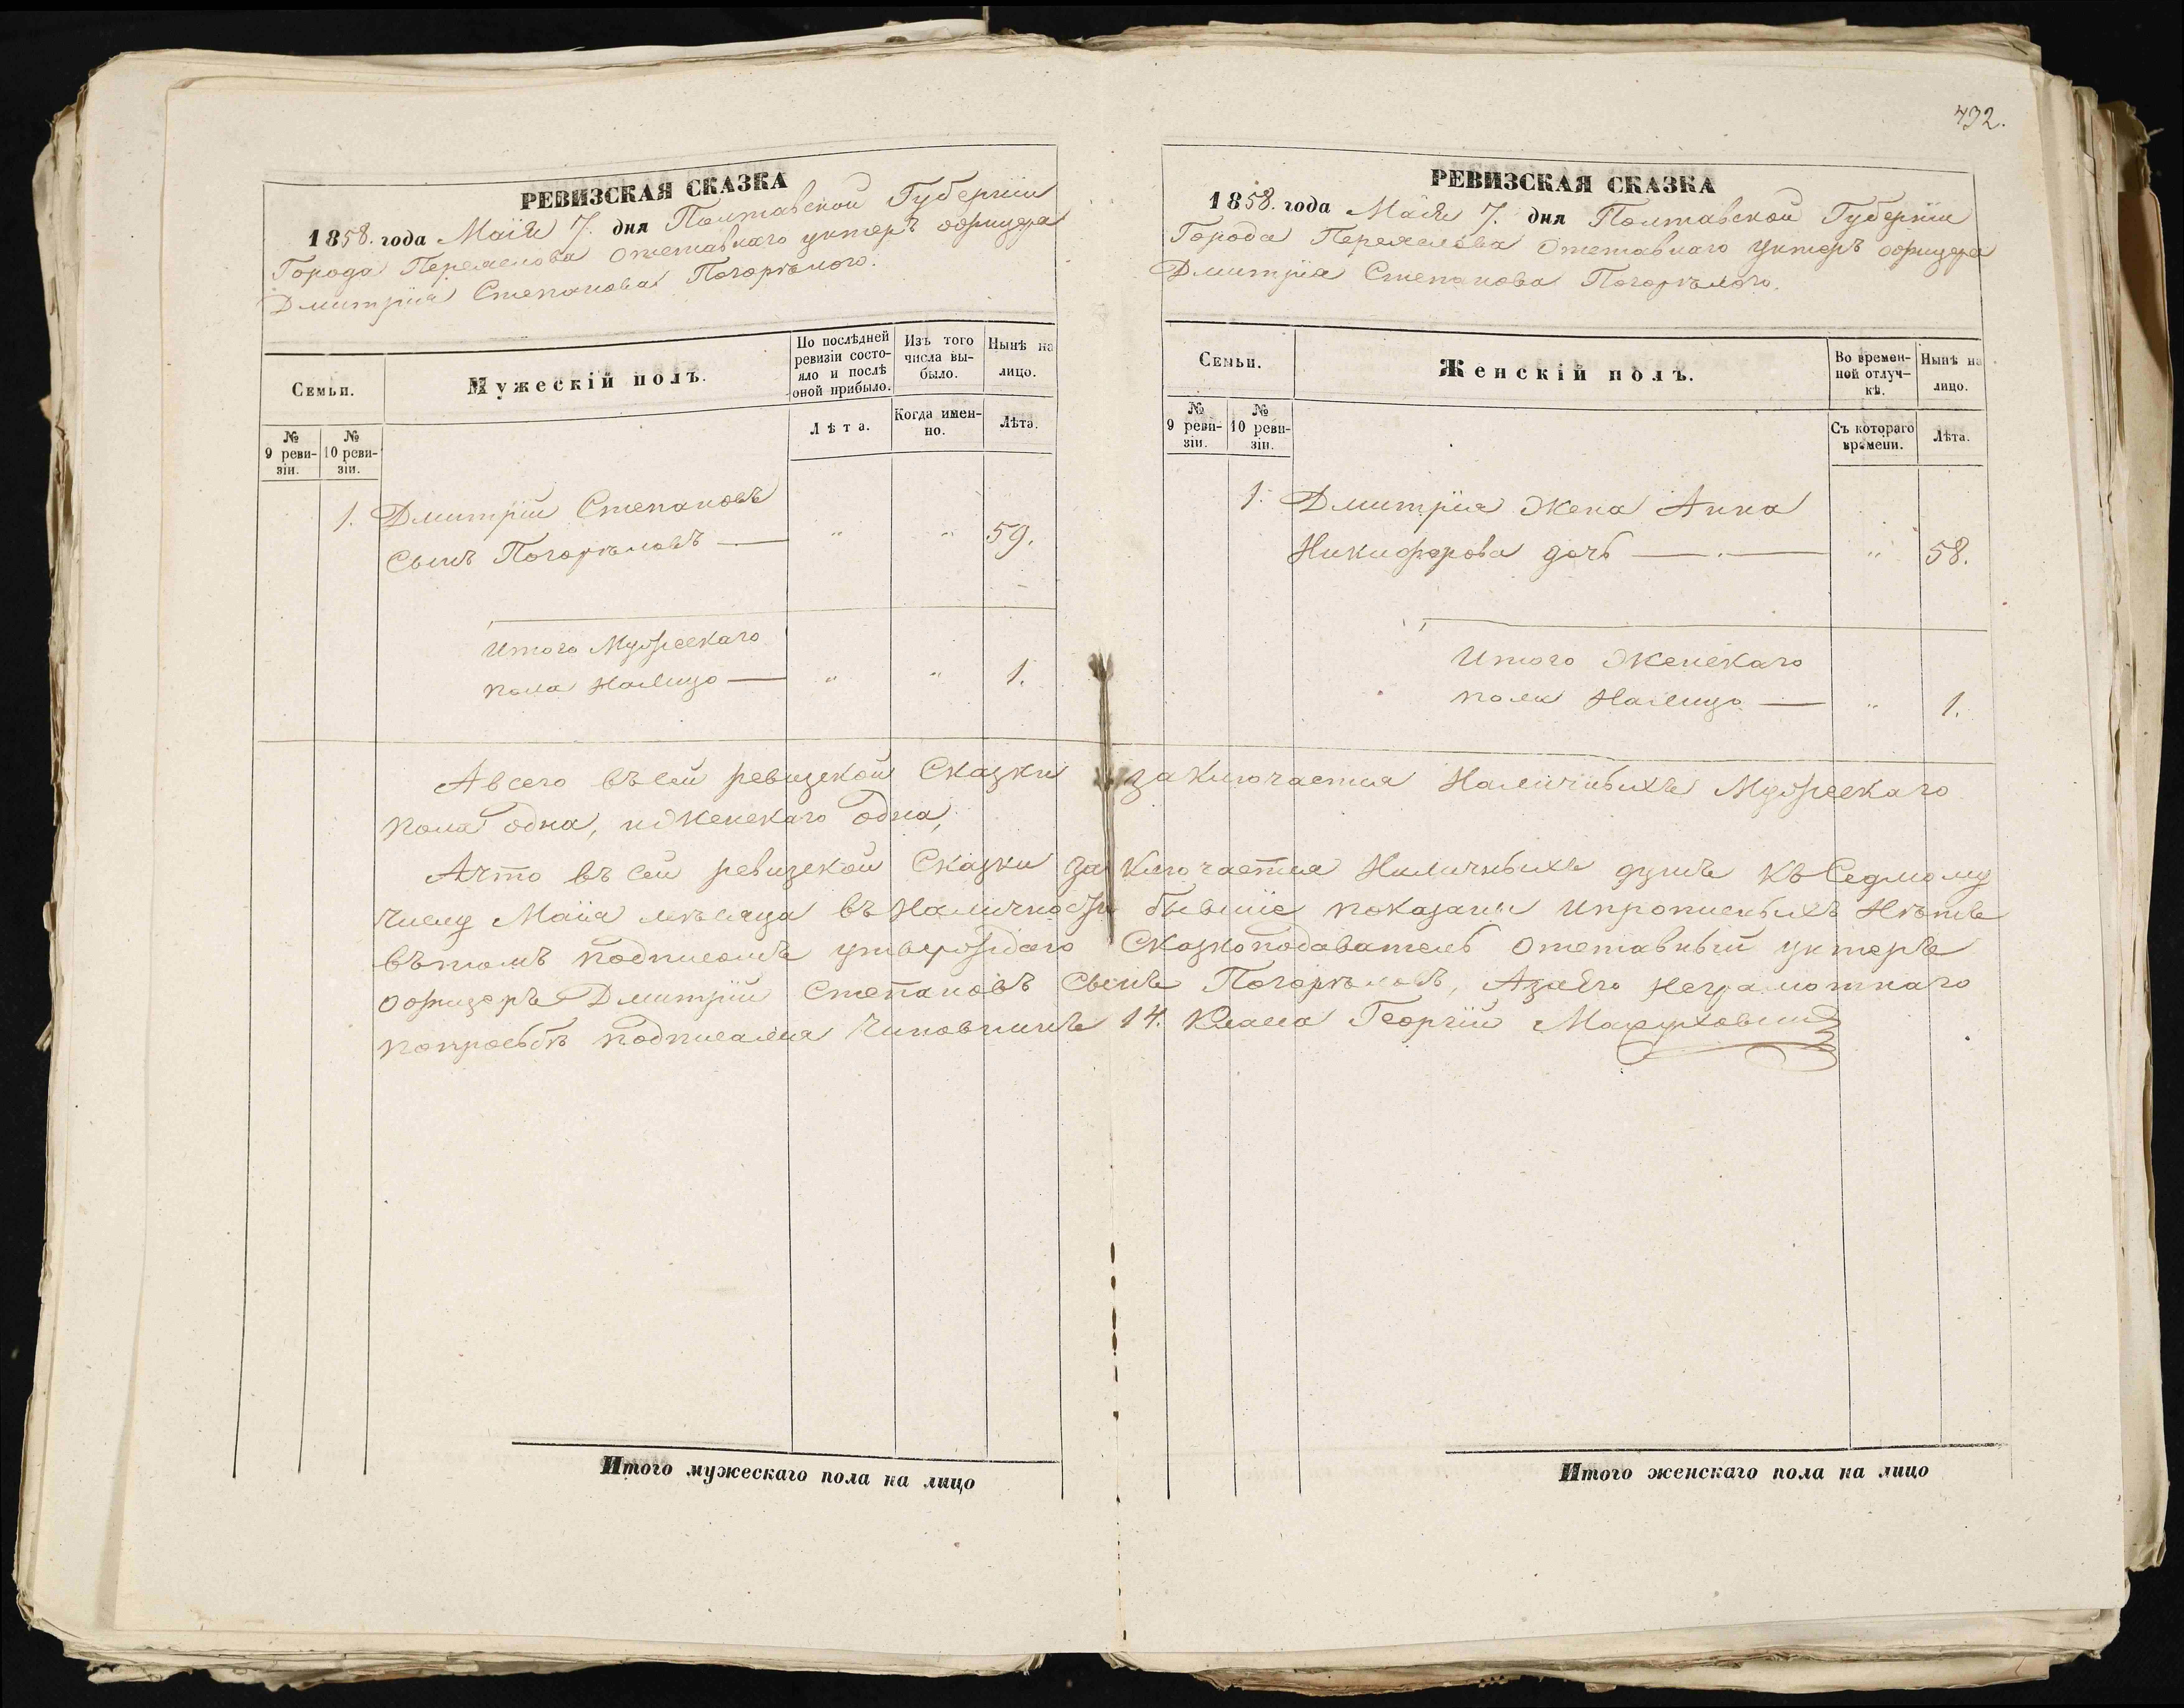 432.
РЕВИЗСКАЯ СКАЗКА
1858. года Маія 7. дня Полтавской Губерніи
Города Переяслова отставнаго унтеръ офицера
Дмитрія Степанова Погорѣлого.
Семьи.
Мужескій полъ.
По послѣдней ревизіи состояло и послѣ оной прибыло.
Изъ того числа выбыло.
Нынѣ на лицо.
№ 9 ревизіи.
№ 10 ревизіи.
Лѣта.
Когда именно.
Лѣта.
1. Дмитрій Степановъ
Сынъ Погорѣловъ — " " 59.
Итого Мужескаго
пола Налицо — " " 1.
РЕВИЗСКАЯ СКАЗКА
1858. года Маія 7. дня Полтавской Губерніи
Города Переяслова Отставнаго Унтеръ офицера
Дмитрія Степанова Погорѣлого.
Семьи.
Женскій полъ.
Во временной отлучкѣ.
Нынѣ на лицо.
№ 9 ревизіи.
№ 10 ревизіи.
Съ котораго времени.
Лѣта.
1. Дмитрія Жена Анна
Никифорова дочь — " 58.
Итого Женскаго
пола Налицо — " 1.
Авсего въ сей ревизской Сказки заключается Наличныхъ Мужескаго
пола одна, иженскаго одна,
Ачто въ сей ревизской Сказки заключается Наличныхъ душъ къ Седмому
числу Маія мѣсяца въ Наличности бывшіе показаны Ипрописныхъ Нѣтъ
вътомъ подписомъ утверждаю Сказкоподаватель отставный унтеръ
офицеръ Дмитрій Степановъ Сынъ Погорѣловъ, Азаѣго неграмотнаго
попросьбѣ подписался Чиновникъ 14. Класа Георгій
Итого мужескаго пола на лицо
Итого женскаго пола на лицо